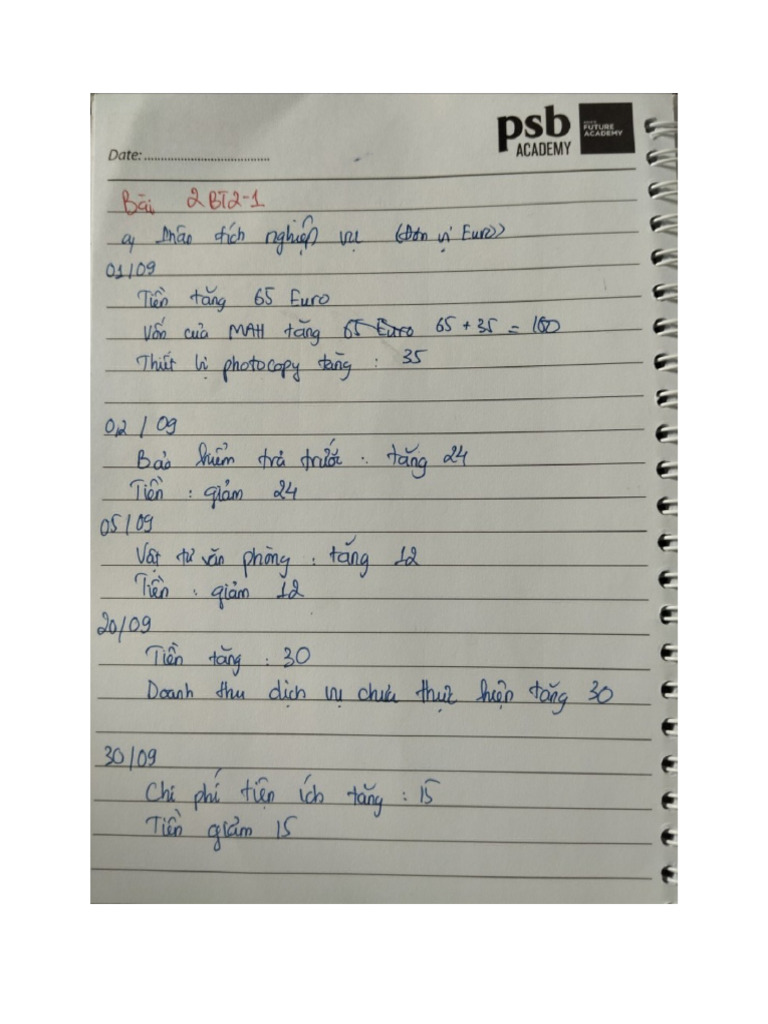 psb
ACADEMY
FUTURE
ACADEMY
Date: ......................................
Bài 2 BT2-1
a, Phân tích nghiệp vụ (Đơn vị Euro)
01/09
Tiền tăng 65 Euro
Vốn của MAH tăng 65 Euro 65 + 35 = 100
Thiết bị photocopy tăng : 35
02 / 09
Bảo hiểm trả trước : tăng 24
Tiền : giảm 24
05/09
Vật tư văn phòng : tăng 12
Tiền : giảm 12
20/09
Tiền tăng : 30
Doanh thu dịch vụ chưa thực hiện tăng 30
30/09
Chi phí tiện ích tăng : 15
Tiền giảm 15